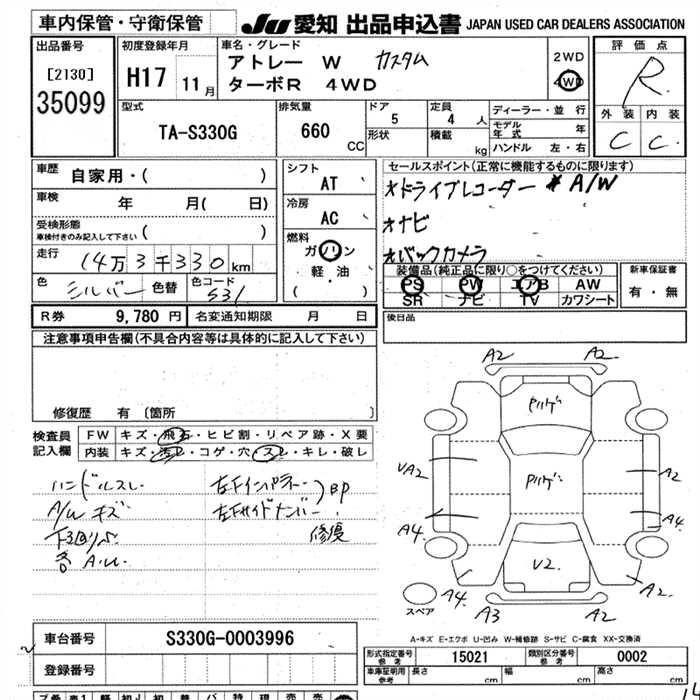 車内保管・守衛保管
JU 愛知 出品申込書 JAPAN USED CAR DEALERS ASSOCIATION
出品番号
[2130]
35099
初度登録年月
H17 11月
車名・グレード
アトレー W カスタム
ターボR 4WD
2WD
4WD
評価点
R
外装 内装
C C
型式
TA-S330G
排気量
660
CC
ドア
5
定員
4 人
形状
積載
kg
ディーラー・並行
モデル年式 年
ハンドル 左・右
車歴
自家用・( )
車検
年 月( 日)
受検形態
車検付きのみ記入して下さい ( )
走行
14万3千330km
色
シルバー 色替
色コード
S31
シフト
AT
冷房
AC
燃料
ガソリン
軽・油
( )
セールスポイント(正常に機能するものに限ります)
*ドライブレコーダー *A/W
*ナビ
*バックカメラ
装備品(純正品に限り○をつけてください)
PS PW エアB AW
SR ナビ TV カワシート
新車保証書
有・無
R券 9,780円 名変通知期限 月 日
後日品
注意事項申告欄(不具合内容等は具体的に記入して下さい)
修復歴 有 〔箇所 〕
検査員記入欄
FW キズ・飛石・ヒビ割・リペア跡・X要
内装 キズ・汚レ・コゲ・穴・スレ・キレ・破レ
ハンドルスレ
A/W キズ
下回りS
左Fインパネー
左Fサイドメンバー
BP
修復
A2 A2
Pルーフ
VA2 A2
Pルーフ
A4 A4
V2
A4 A3 A2 A2
スペア
A-キズ E-エクボ U-凹み W-補修跡 S-サビ C-腐食 XX-交換済
車台番号 S330G-0003996
登録番号
形式指定番号
参考
15021
類別区分番号
参考
0002
車庫証明用
参考
長さ cm 幅 cm 高さ cm